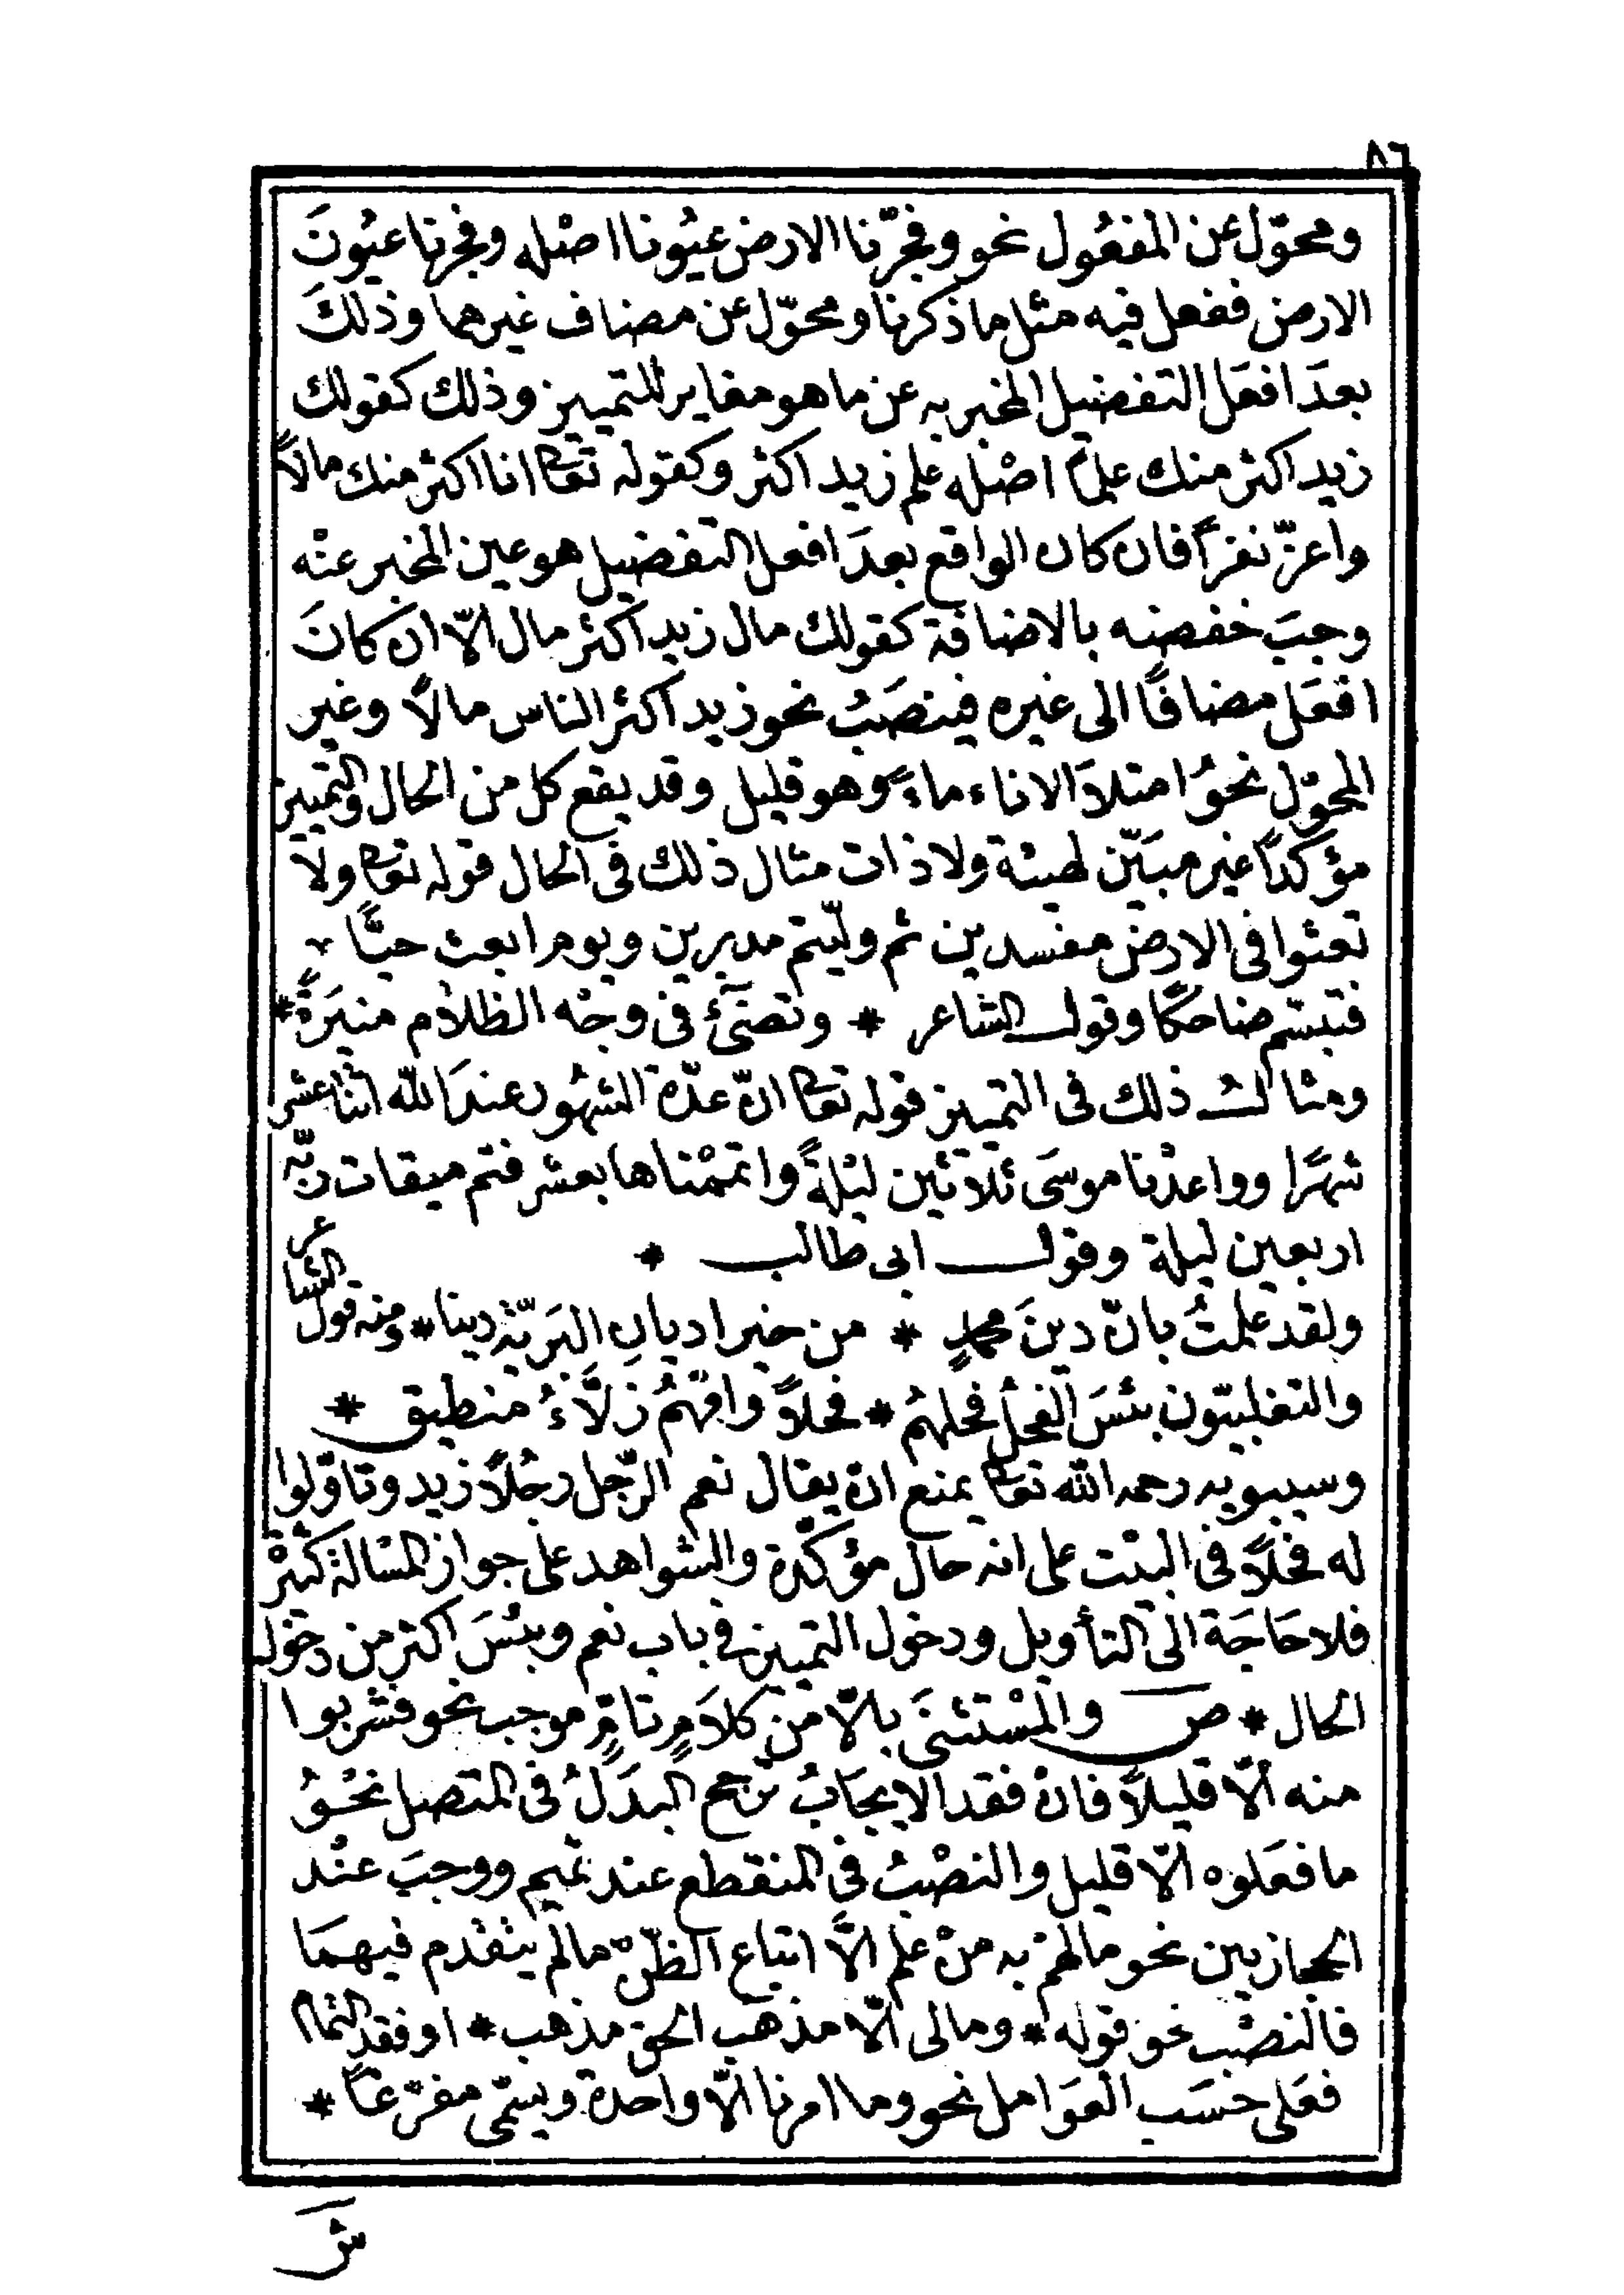 ٨٦
ومحوّل عن المفعُول نحو وفجرّنا الارض عيُونا اصْله وفجرنا عيُونَ
الارض ففعل فيه مثل ما ذكرنا ومحوّل عن مضاف غيرهما وذلكَ
بعدَ افعَل التفضيل المخبر به عن ما هو مغاير للتمييز وذلك كقولك
زيد اكثر منك علماً اصْله علم زيد اكثر وكقوله تعا انا اكثر منك مالاً
واعزّ نفراً فان كان الواقع بعدَ افعل التفضيل هو عين المخبر عنْه
وجبَ خفضه بالاضافة كقولك مال زيد اكثر مال الّا ان كانَ
افعَل مضافًا الى غيره فينصَبُ نحو زيد اكثر الناس مالاً وغير
المحوّل نحوُ امتلاَ الاناء ماءً وهو قليل وقد يقع كل من الحال والتمييز
مؤكداً غير مبَيّن لهيئة ولا ذات مثال ذلك فى الحال قوله تعا ولا
تعثوا فى الارض مفسدين ثم ولّيتم مدبرين ويوم ابعث حيًّا
فتبسّم ضاحكًا وقول الشاعر * وتضئُ فى وجْه الظلام منيَرةً *
ومثال ذلك فى التمييز قوله تعا انّ عدّة الشهُور عندَ الله اثنا عشر
شهرًا وواعدْنا موسَى ثلاثين ليْلةً واتممْناها بعشر فتم ميقات ربّه
اربعين ليلة وقول ابى طالب *
ولقد علمتُ بانّ دينَ محمدٍ * من خير اديانِ البَريّة دينا * ومنه قول الشاعر
والتغلبيّون بئسَ الفحلُ فحلهمُ * فحلاً وامّهمُ زلَّاءُ منطيق *
وسيبويه رحمه الله تعا يمنع ان يقال نعم الرّجل رجُلاً زيد وتاوّلوا
له فحلاً فى البيْت على انه حال مؤكّدة والشواهد على جواز المسْالة كثيرْة
فلا حَاجَة الى التأويل ودخول التمييز فى باب نعم وبئسَ اكثر من دخوله
الحال * ص والمسْتثنَى بالّا من كلاَمٍ تامٍّ موجب نحو فشربوا
منه الّا قليلاً فانْ فقد الايجَابُ ترجح البدَلُ فى المتصل نحْوُ
ما فعَلوه الّا قليل والنصْبُ فى المنقطع عند تميم ووجبَ عنْد
الحجازيين نحو مالهمْ به منْ علم الَّا اتباع الظّنّ مالم يتقدم فيهمَا
فالنصْب نحو قوله * ومالى الّا مذهَب الحق مذهب * او فقد التمام
فعَلى حَسَب العَوَامل نحو وما امرنا الّا واحدة ويسَمّى مفرّغاً *
ش